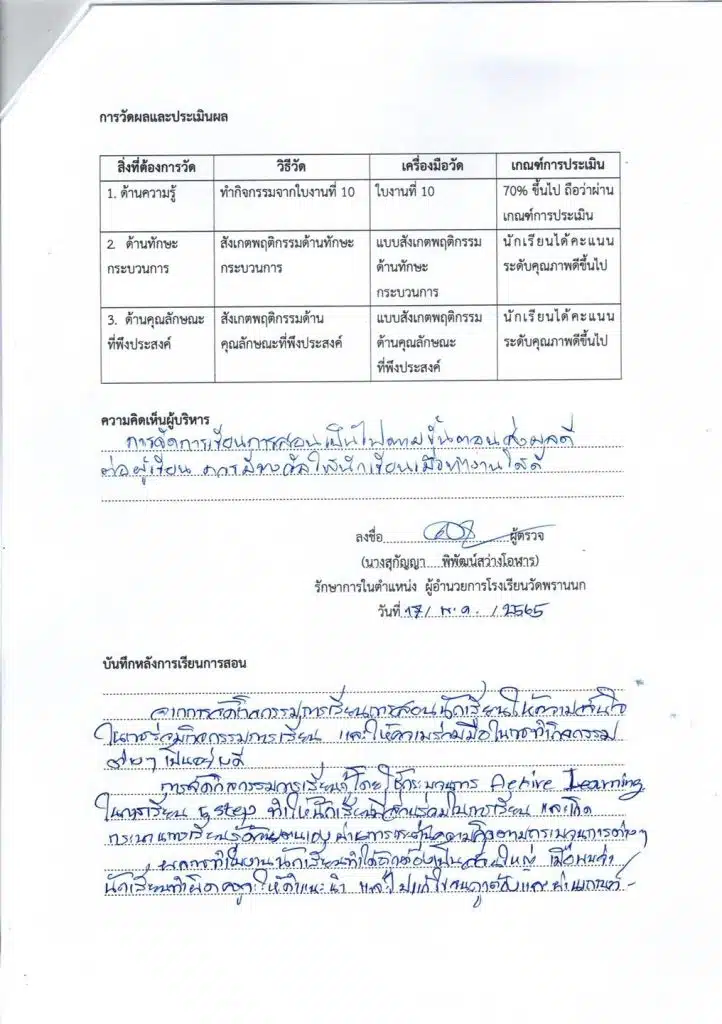 การวัดผลและประเมินผล
สิ่งที่ต้องการวัด วิธีวัด เครื่องมือวัด เกณฑ์การประเมิน
1. ด้านความรู้ ทำกิจกรรมจากใบงานที่ 10 ใบงานที่ 10 70% ขึ้นไป ถือว่าผ่าน
เกณฑ์การประเมิน
2. ด้านทักษะ สังเกตพฤติกรรมด้านทักษะ แบบสังเกตพฤติกรรม นักเรียนได้คะแนน
กระบวนการ กระบวนการ ด้านทักษะ ระดับคุณภาพดีขึ้นไป
กระบวนการ
3. ด้านคุณลักษณะ สังเกตพฤติกรรมด้าน แบบสังเกตพฤติกรรม นักเรียนได้คะแนน
ที่พึงประสงค์ คุณลักษณะที่พึงประสงค์ ด้านคุณลักษณะ ระดับคุณภาพดีขึ้นไป
ที่พึงประสงค์
ความคิดเห็นผู้บริหาร
การจัดการเรียนการสอนเป็นไปตามขั้นตอน ส่งผลดี
ต่อผู้เรียน ควรมีรางวัลให้นักเรียนเมื่อทำงานได้ดี
ลงชื่อ ผู้ตรวจ
(นางสุกัญญา พิพัฒน์สว่างโอฬาร)
รักษาการในตำแหน่ง ผู้อำนวยการโรงเรียนวัดพรานนก
วันที่ 17 / พ.ค. / 2565
บันทึกหลังการเรียนการสอน
จากการจัดกิจกรรมการเรียนการสอนนักเรียนให้ความสนใจ
ในการร่วมกิจกรรมการเรียน และให้ความร่วมมือในการทำกิจกรรม
ต่างๆ เป็นอย่างดี
การจัดกิจกรรมการเรียนรู้โดยใช้กระบวนการ Active Learning
ในการเรียน 5 step ทำให้นักเรียนมีส่วนร่วมในการเรียน และเกิด
กระบวนการเรียนรู้ด้วยตนเอง ผ่านการ ความคิดตามกระบวนการต่างๆ
ผลการทำใบงานนักเรียนทำได้ถูกต้องเป็นส่วนใหญ่ เมื่อพบว่า
นักเรียนทำผิด ครูจะให้คำแนะนำ และ ไปแก้ไขจนถูกต้องและผ่านเกณฑ์